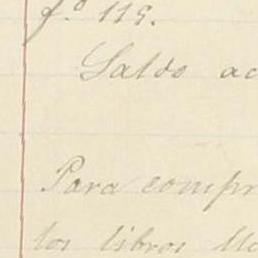 f.º 119.
Saldo ac
Para compr
los libros llo